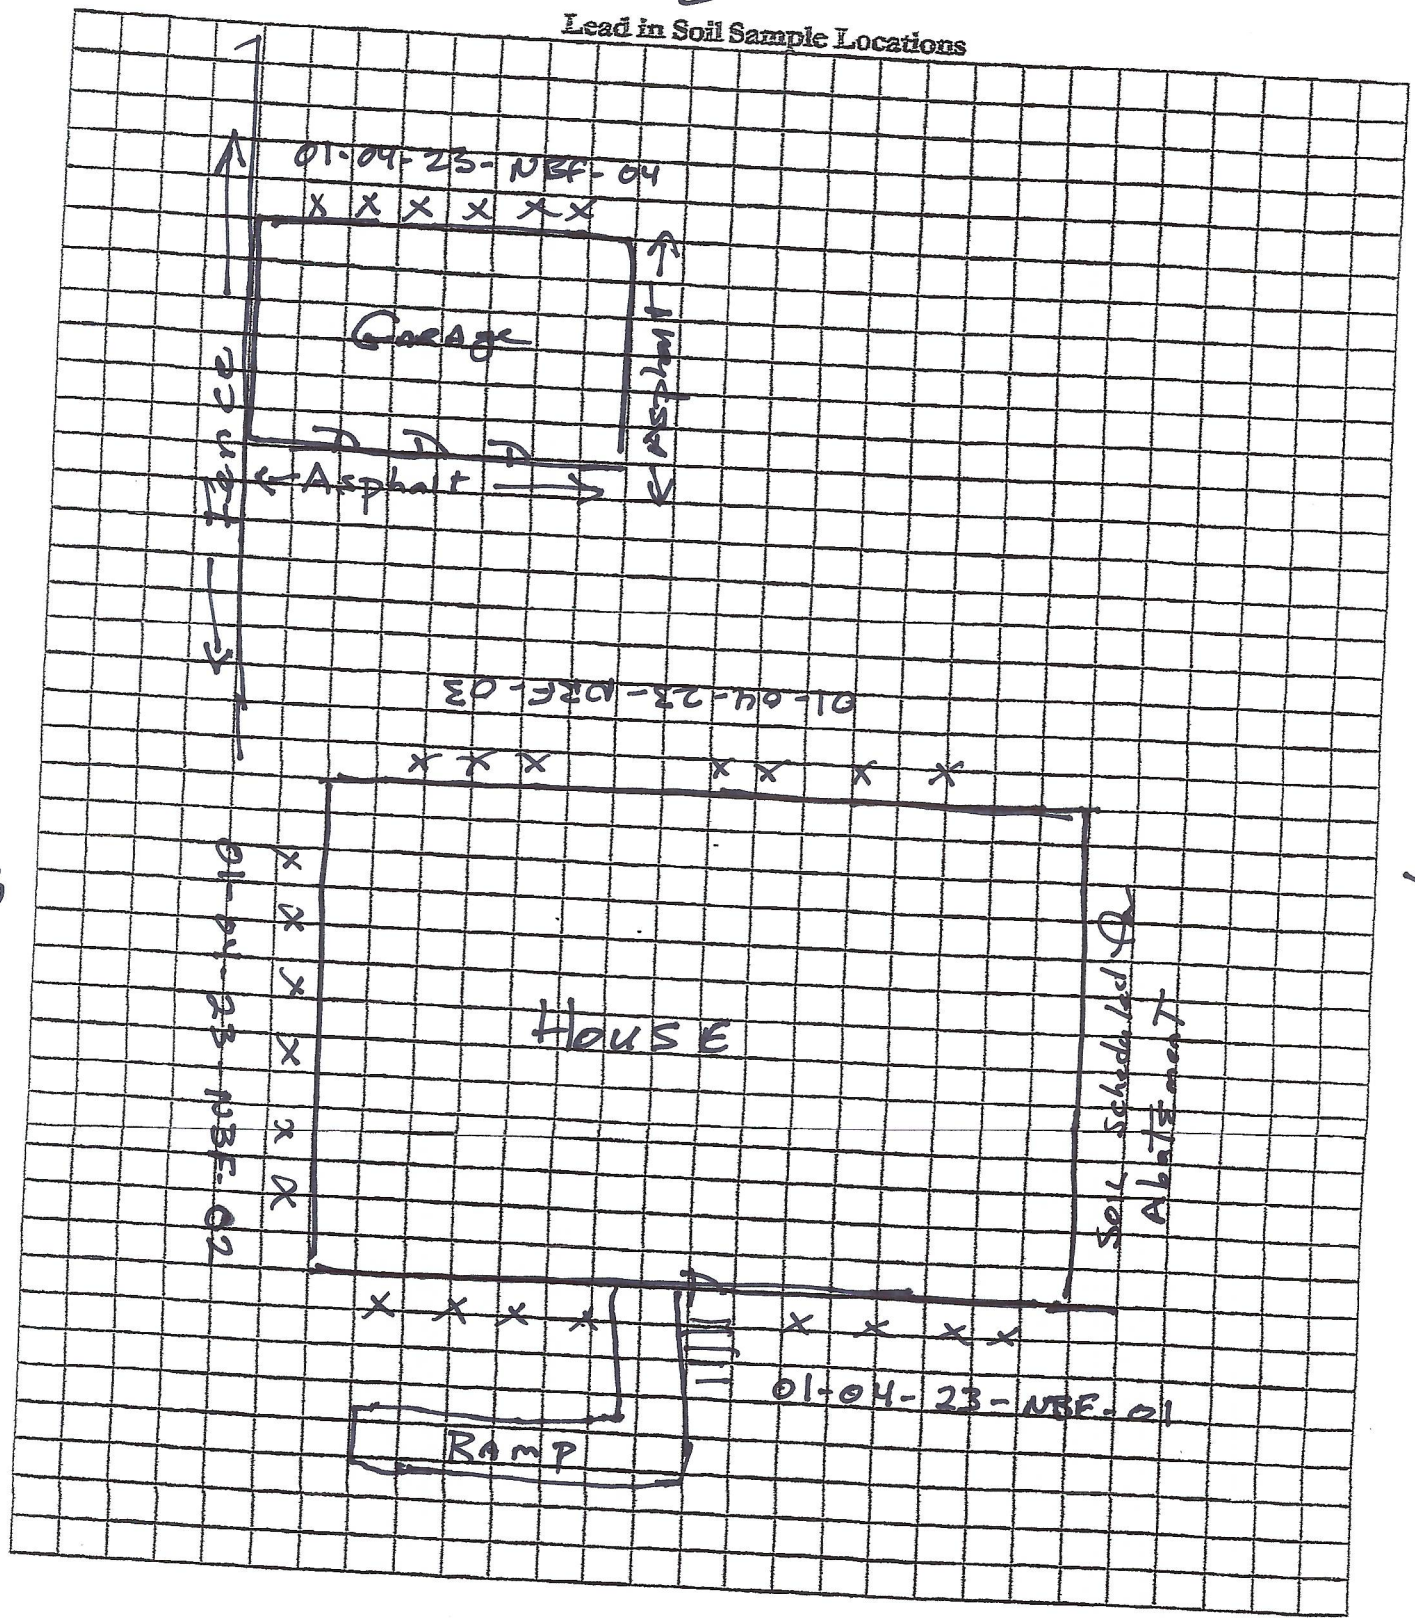 Lead in Soil Sample Locations
01-04-23-NBF-04
x x x x x x
Garage
Fence
Asphalt
D D D
Asphalt
01-04-23-NBF-03
x x x x x x x
01-04-23-NBF-02
x x x x x x
House
Soil Scheduled for
Abatement
x x x x x x x x
01-04-23-NBF-01
Ramp